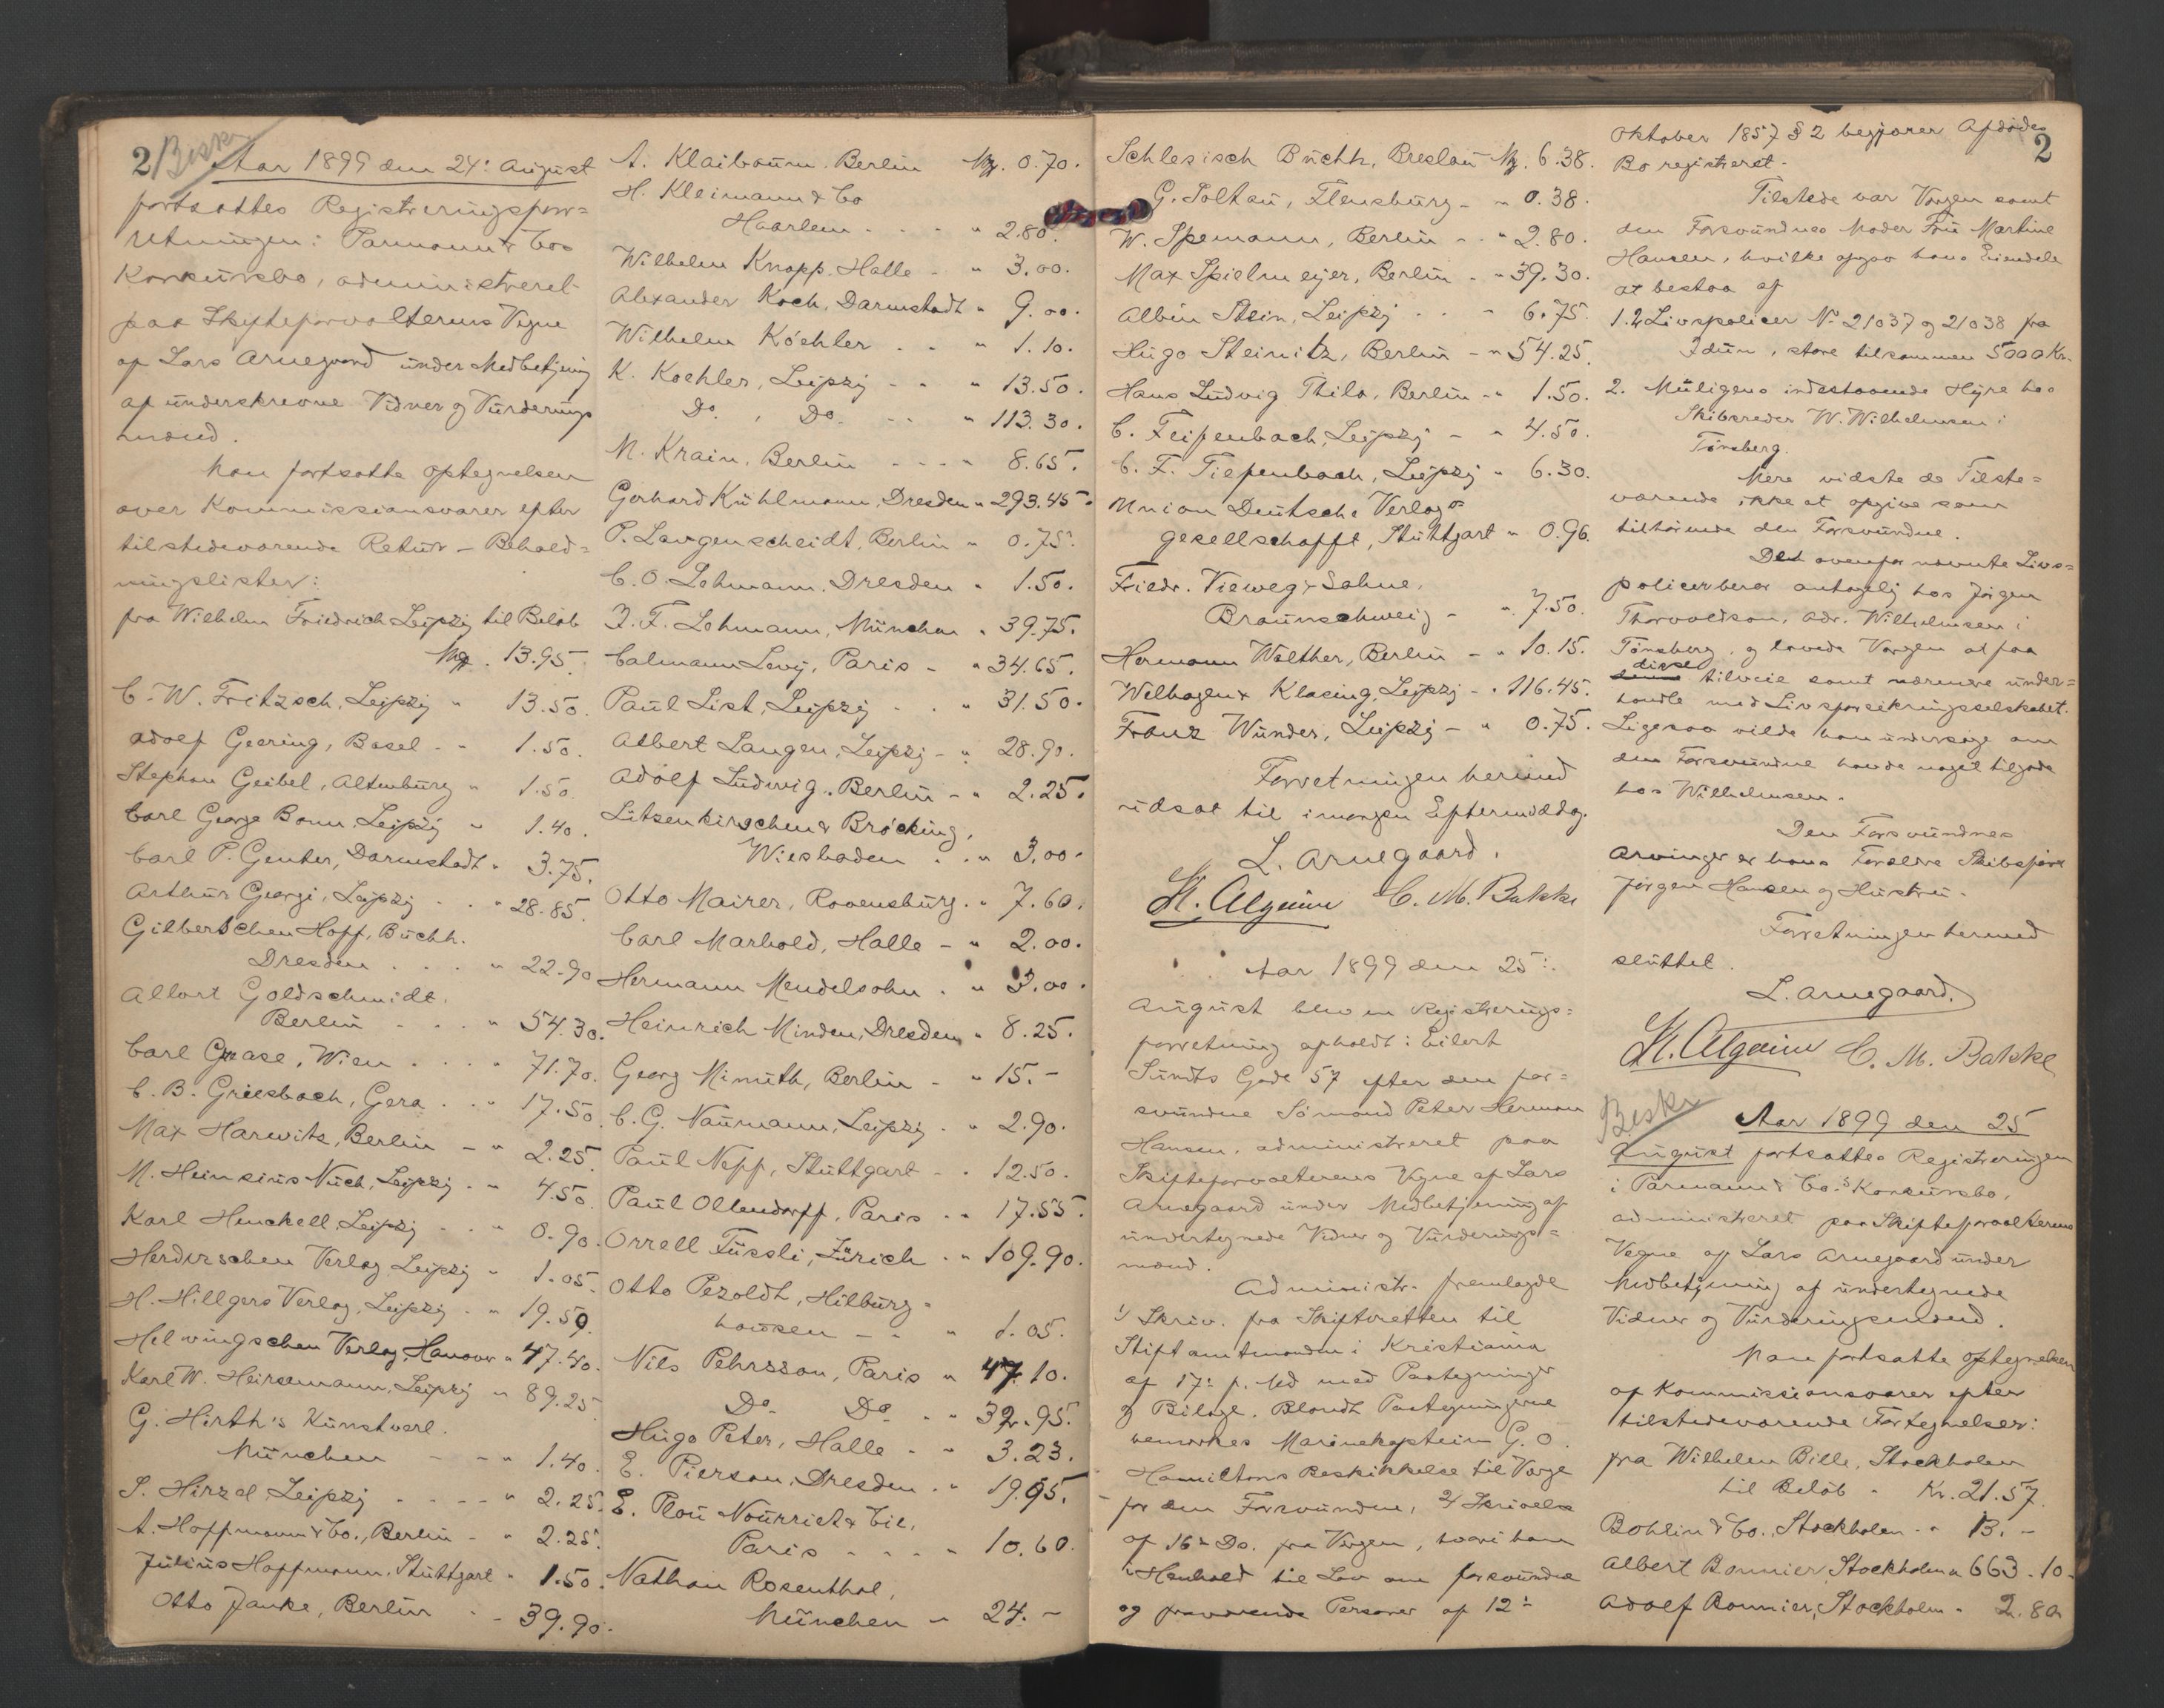 2 Beskr
Aar 1899 den 24: August
fortsattes Registreringsfor=
retningen i Parmann & Cos
Konkursbo, administreret
paa Skifteforvalterens Vegne
af Lars Arnegaard under Medbetjening
af underskrevne Vidner og Vurderings
mænd.
Man fortsatte optegnelsen
over Kommissionsvarer efter
tilstedeværende Retur- Behold=
ningslister:
fra Wilhelm Friedrich Leipzig til Beløb
Mk. 13.95
C. W. Fritzsch, Leipzig " 13.50.
Adolf Geering, Basel - " 1.50.
Stephan Geibel, Altenburg " 1.50.
Carl George Bonn, Leipzig " 1.40.
Carl P. Genter, Darmstadt " 3.75.
Arthur Georgi, Leipzig . . " 28.85.
Gilbertschen Hoff. Buchh.
Dresden . . . " 22.90
Albert Goldschmidt,
Berlin - . . " 54.30.
Carl Graase, Wien . . . " 71.70.
C. B. Griesbach, Gera . . " 17.50
Max Harwitz, Berlin - " 2.25.
M. Heinsius Nach, Leipzig . " 4.50
Karl Henckell Leipzig . . " 0.90.
Herderschen Verlag Leipzig " 1.05.
H. Hillgers Verlag, Leipzig . " 19.50.
Helwingschen Verlag, Hanover " 47.40.
Karl W. Heirsemann, Leipzig " 89.25
G. Hirth's Kunstverl.
München - - " 1.40.
S. Hirzel Leipzig . - - - " 2.25.
A. Hoffmann & Co., Berlin - " 2.25.
Julius Hoffmann, Stuttgart " 1.50.
Otto Janke, Berlin . . 39.90.
A. Klaibaum. Berlin Mk. 0.70.
H. Kleimann & Co
Haarlem . . . " 2.80.
Wilhelm Knapp. Halle - " 3.00.
Alexander Koch, Darmstadt " 9.00.
Wilhelm Köehler . . " 1.10.
K. Koehler, Leipzig - . " 13.50.
Do. , Do. . . " 113.30.
M. Krain, Berlin - - - " 8.65.
Gerhard Kühlmann, Dresden " 293.45.
P. Langenscheidt, Berlin " 0.75.
C. O. Lehmann. Dresden " 1.50.
J. F. Lehmann, München " 39.75.
Calmann Levy, Paris - " 34.65.
Paul List, Leipzig . . " 31.50.
Albert Langen, Leipzig - " 28.90.
Adolf Ludwig. Berlin - " 2.25.
Lützenkirschen & Bröcking,
Wiesbaden . . " 3.00.
Otto Mairer, Ravensburg. " 7.60.
Carl Marhold, Halle - " 2.00.
Hermann Mendelsohn . " 3.00.
Heinrich Minden, Dresden " 8.25.
Georg Minuth, Berlin - " 15.-
C. G. Naumann, Leipzig . " 2.90.
Paul Neff, Stuttgart - . 12.50.
Paul Ollendorff, Paris . " 17.55.
Orrell Füssli, Zürich . " 109.90.
Otto Pezoldt, Hilburg=
hausen - - " 1.05.
Nils Pehrsson, Paris " 47.10.
Do. Do. . " 32.95.
Hugo Peter, Halle - " 3.23.
E. Pierson, Dresden . " 19.95.
E. Plou Nourriet & Cie,
Paris - - - " 10.60.
Nathan Rosenthal,
München " 24.-
Schlesisch Buchh, Breslau Mk. 6.38.
G. Soltau, Flensburg - " 0.38.
W. Spemann, Berlin . . " 2.80.
Max Spielmeyer, Berlin - " 39.30.
Albin Stein, Leipzig . . - 6.75.
Hugo Steinitz, Berlin - " 54.25.
Hans Ludwig Thilo, Berlin - " 1.50.
C. Feifenbach, Leipzig - " 4.50.
C. F. Tiefenbach, Leipzig " 6.30.
Union Deutsche Verlags
gesellschafft, Stuttgart " 0.96.
Friedr. Vieweg & Sohne,
Braunschweig - " 7.50.
Hermann Walther, Berlin - " 10.15.
Welhagen & Klasing, Leipzig - " 116.45.
Franz Wunder, Leipzig - " 0.75.
Forretningen hermed
udsat til imorgen Eftermiddag.
L. Arnegaard.
C. M. Bakke
Aar 1899 den 25:
August blev en Registrerings=
forretning afholdt i Eilert
Sundts Gade 57 efter den for=
svundne Sömand Peter Herman
Hansen, administreret paa
Skifteforvalterens Vegne af Lars
Arnegaard under Medbetjening af
undertegnede Vidner og Vurderings=
mænd.
Administr. fremlagde
1/ Skriv. fra Skifteretten til
Stiftamtmanden i Kristiania
af 17: f. Md med Paategninger
og Bilage. Blandt Paategningerne
bemærkes Marinekaptein G. O.
Hamiltons Beskikkelse til Værge
for den Forsvundne, 2/ Skrivelse
af 16: Ds. fra Værgen, hvori han
i Henhold til Lov om forsvundne
og fraværende Personer af 12:
2
Oktober 1857 § 2 begjærer Afdødes
Bo registreret.
Tilstede var Værgen samt
den Forsvundnes Moder Fru Martine
Hansen, hvilke opgav hans Eiendele
at bestaa af
1. 2 Livspolicer No 21037 og 21038 fra
Idun, store tilsammen 5000 Kr.
2. Muligens indestaaende Hyre hos
Skibsreder W. Wilhelmsen i
Tönsberg.
Mere vidste de Tilste=
værende ikke at opgive som
tilhörende den Forsvundne.
De ovenfor nævnte Livs=
policer beror antagelig hos Jörgen
Thorvaldsen, adr. Wilhelmsen i
Tönsberg, og lovede Værgen at faa
disse tilveie samt nærmere under=
handle med Livsforsikringsselskabet.
Ligesaa vilde han undersöge om
den Forsvundne havde noget tilgode
hos Wilhelmsen.
Den Forsvundnes
Arvinger er hans Forældre Skibsförer
Jörgen Hansen og Hustru.
Forretningen hermed
sluttet.
L. Arnegaard.
C. M. Bakke
Beskr
Aar 1899 den 25
August fortsattes Registreringen
i Parmann & Co.s Konkursbo,
administreret paa Skifteforvalterens
Vegne af Lars Arnegaard under
Medbetjening af undertegnede
Vidner og Vurderingsmænd.
Man fortsatte optegnelsen
af Kommissionsvarer efter
tilstedeværende Fortegnelser:
fra Wilhelm Bille, Stockholm
til Beløb - Kr. 21.57.
Bohlin & Co., Stockholm - " 13.-
Albert Bonnier, Stockholm " 663.10
Adolf Bonnier, Stockholm - 2.80